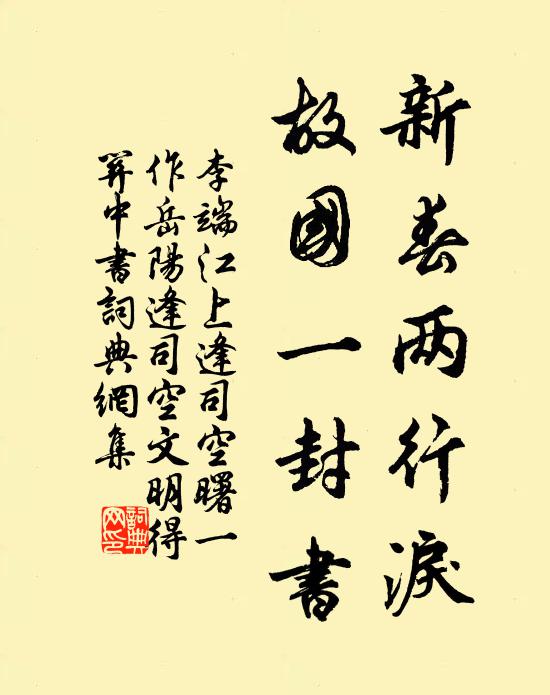 新春两行淚
故國一封書
李端江上逢司空曙一
作岳陽逢司空文明得
關中書詞典網集
詞典
网印